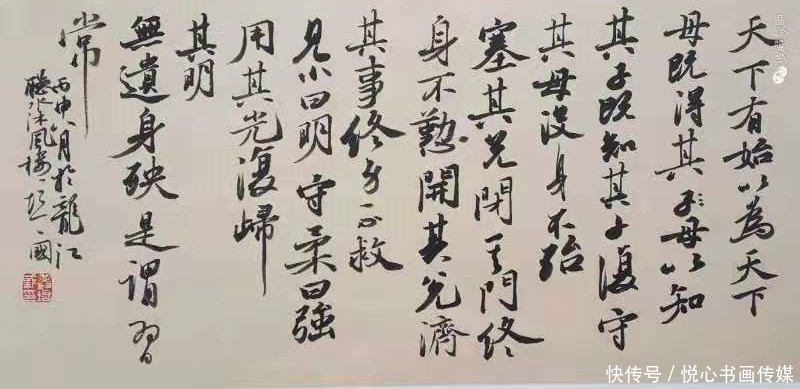 天下有始以為天下
母既得其子母以知
其子既知其子復守
其母沒身不殆
塞其兌閉其門終
身不勤開其兌濟
其事終身不救
見小曰明守柔曰強
用其光復歸
其明
無遺身殃是謂習
常
丙申八月於龍江
聽水沐風樓國
快传号/悦心书画传媒